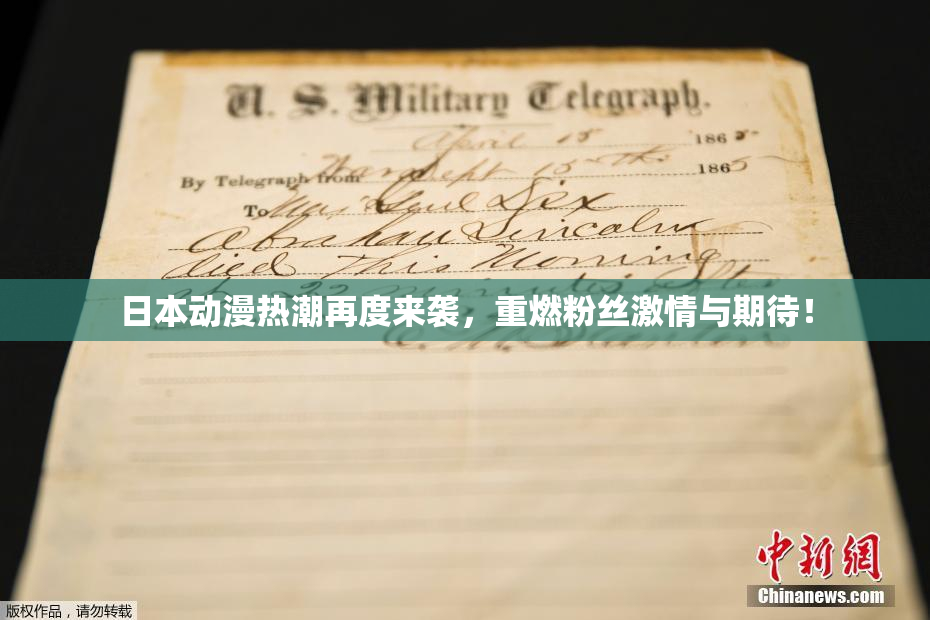 U. S. Military Telegraph.
April 15 1865
By Telegraph from War Dept 15th 1865
To Maj Genl Dix
Abraham Lincoln
died This Morning
at 22 minutes after
日本动漫热潮再度来袭，重燃粉丝激情与期待！
E. M. Stanton
中新網
Chinanews.com
版权作品，请勿转载